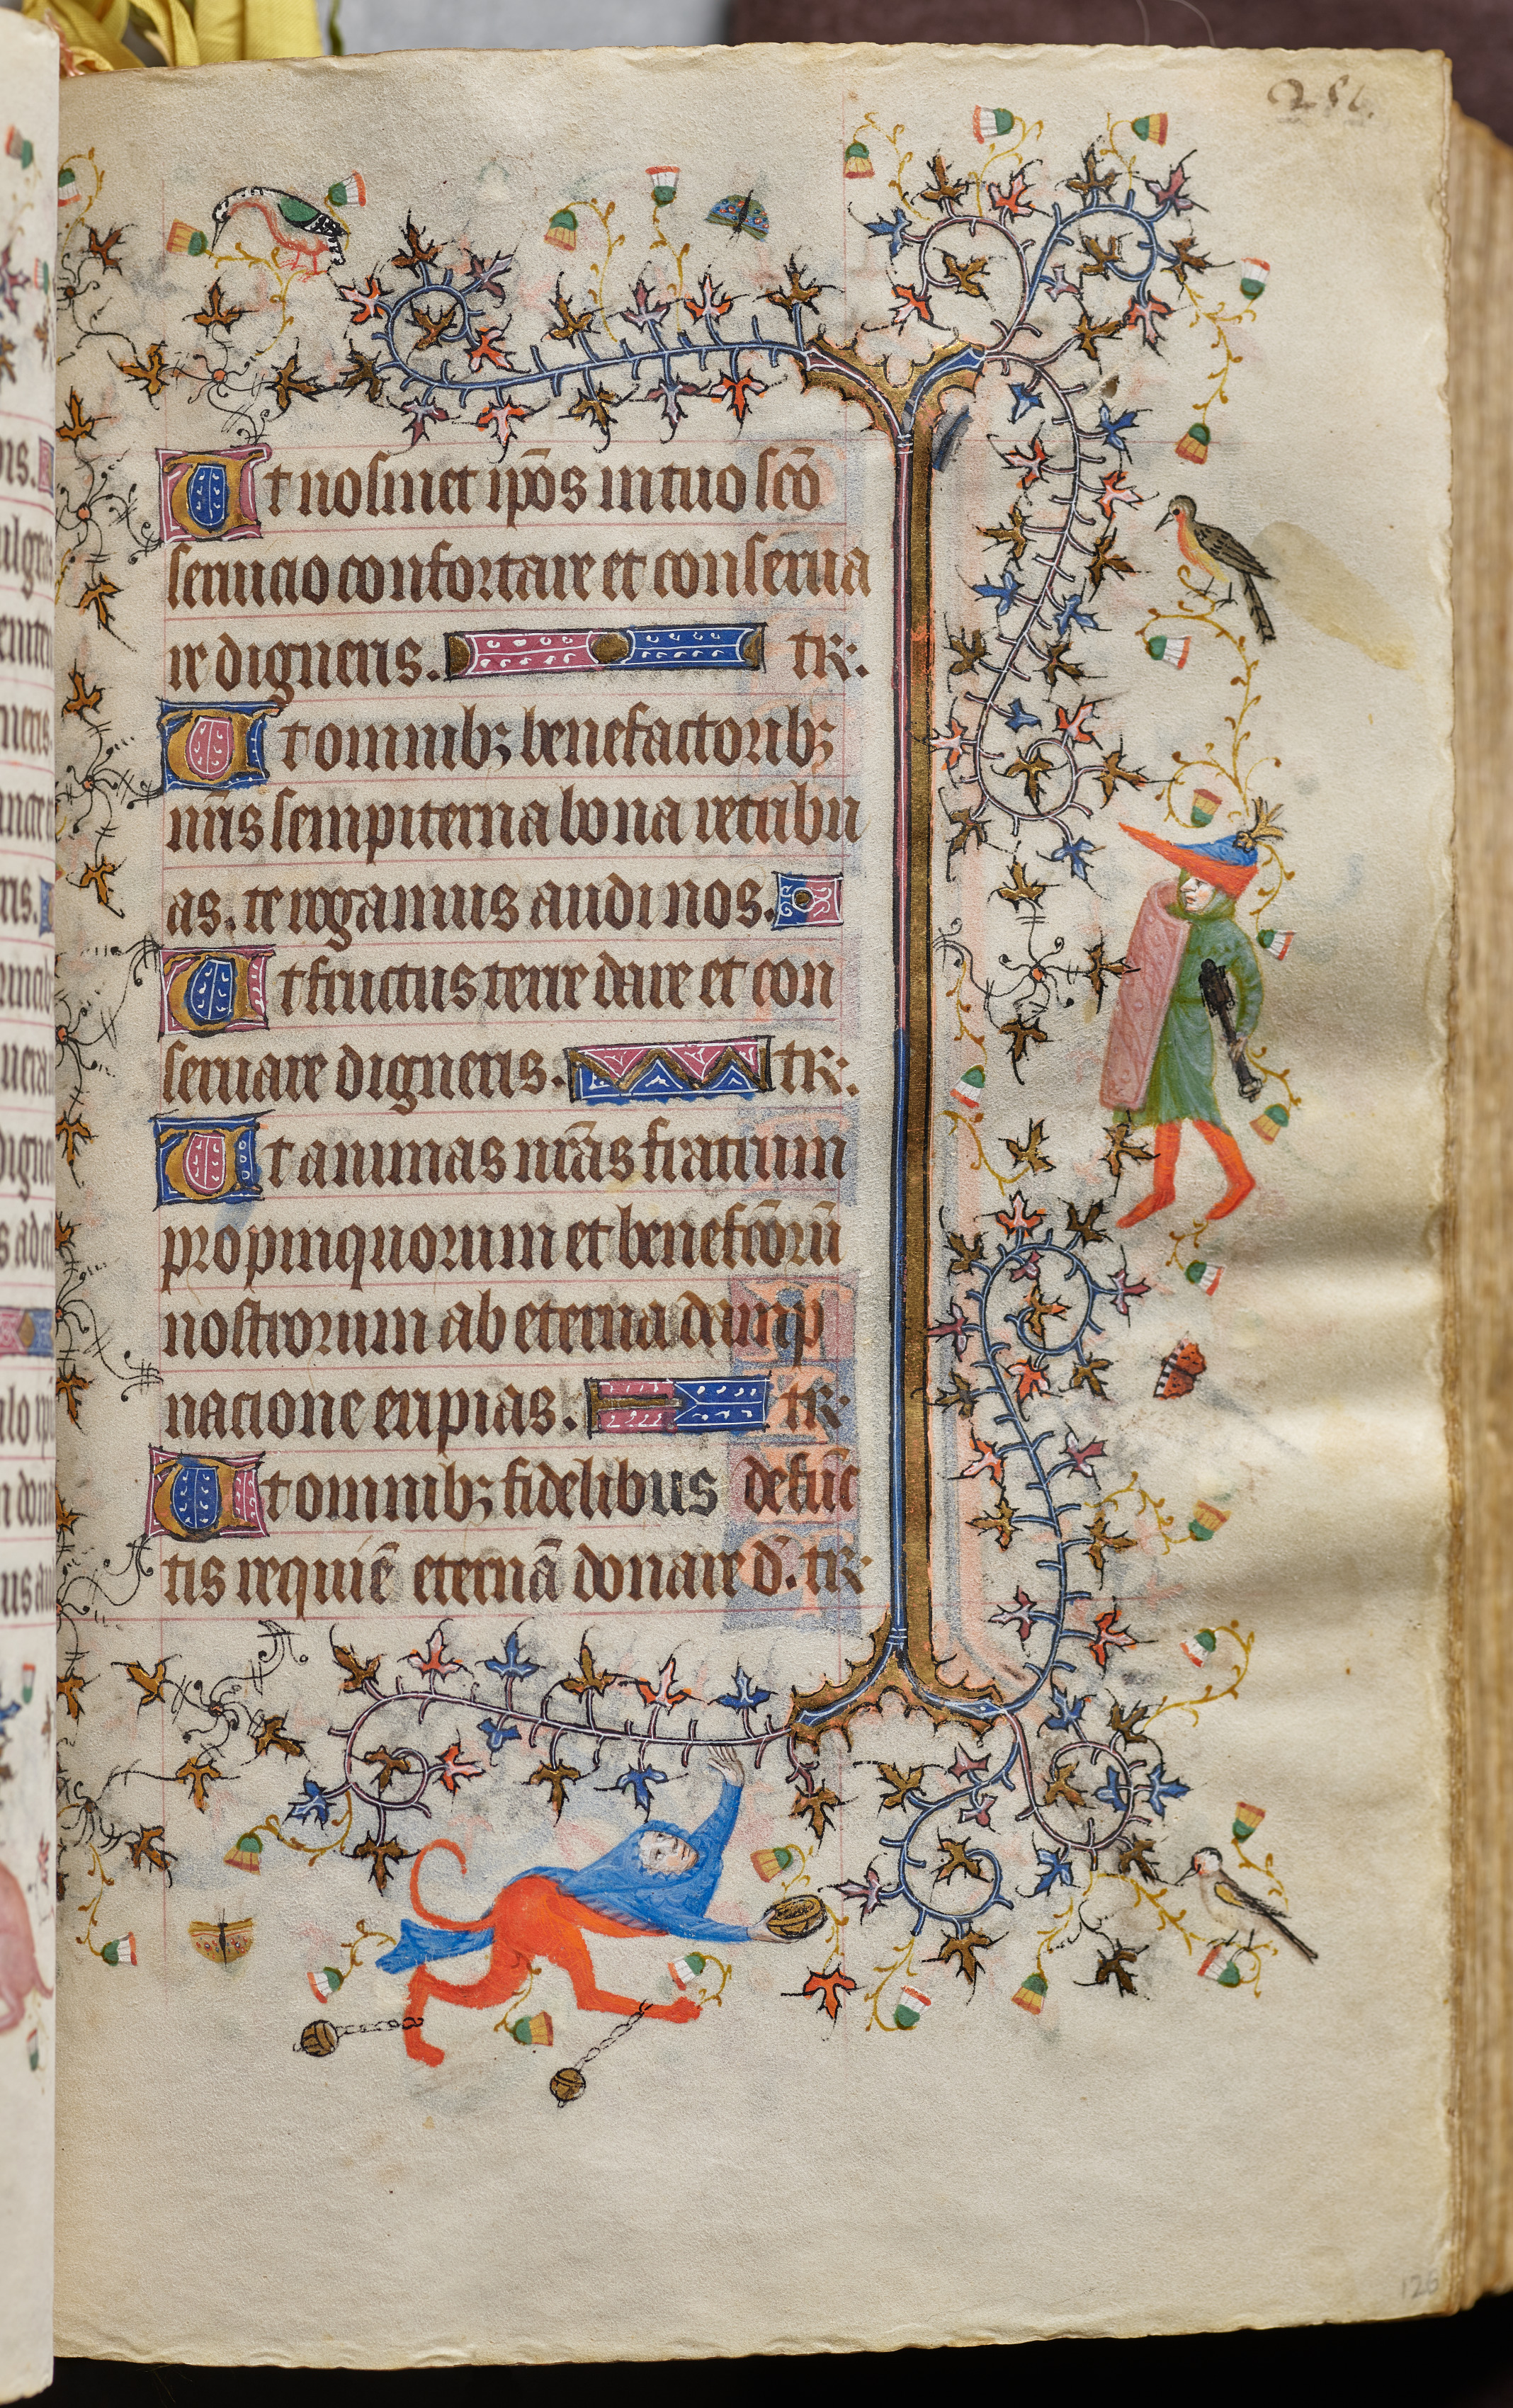 251.
Ut nosmet ip̄os in tuo sc̄o
seruicio confortare et conserua
re digneris. tr̄.
Ut omnibꝫ benefactoribꝫ
nr̄is sempiterna bona retribu
as. te rogamus audi nos.
Ut fructus terre dare et con
seruare digneris. tr̄.
Ut animas nr̄as fratrum
propinquorum et benefc̄orū
nostrorum ab eterna damp
nacione eripias. tr̄
Ut omnibꝫ fidelibus defūc
tis requiē eternā donare d̄. tr̄
126